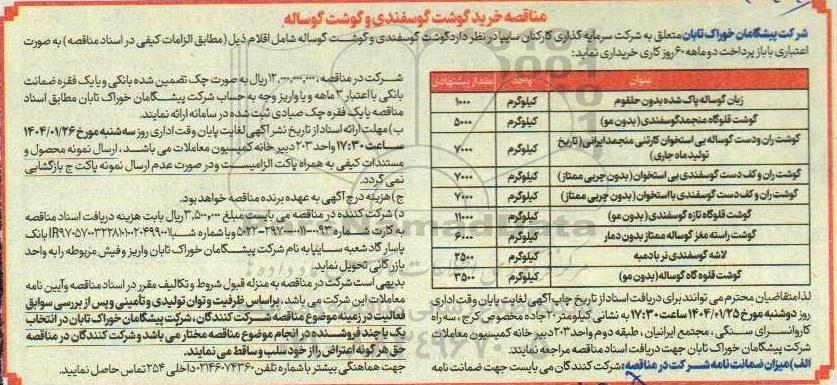 مناقصه خرید گوشت گوسفندی و گوشت گوساله
شرکت پیشگامان خوراک تابان متعلق به شرکت سرمایه گذاری کارکنان سایپا در نظر دارد گوشت گوسفندی و گوشت گوساله شامل اقلام ذیل (مطابق الزامات کیفی در اسناد مناقصه) به صورت
اعتباری با باز پرداخت دو ماهه ۶۰ روز کاری خریداری نماید:
عنوان واحد مقدار پیشنهادی
زبان گوساله پاک شده بدون حلقوم کیلوگرم ۱۰۰۰
گوشت قلوه‌گاه منجمد گوسفندی (بدون مو) کیلوگرم ۵۰۰۰
گوشت ران و دست گوساله بی استخوان کارتنی منجمد ایرانی (تاریخ
تولید ماه جاری) کیلوگرم ۷۰۰۰
گوشت ران و کف دست گوسفندی بی استخوان (بدون چربی ممتاز) کیلوگرم ۷۰۰۰
گوشت ران و کف دست گوسفندی با استخوان (بدون چربی ممتاز) کیلوگرم ۷۰۰۰
گوشت قلوه‌گاه تازه گوسفندی (بدون مو) کیلوگرم ۱۱۰۰۰
گوشت راسته مغز گوساله ممتاز بدون دمار کیلوگرم ۶۰۰۰
لاشه گوسفندی نر با دمبه کیلوگرم ۲۵۰۰
گوشت قلوه گاه گوساله (بدون مو) کیلوگرم ۳۵۰۰
لذا متقاضیان محترم می توانند برای دریافت اسناد از تاریخ چاپ آگهی لغایت پایان وقت اداری
روز دوشنبه مورخ ۱۴۰۴/۰۱/۲۵ ساعت ۱۷:۳۰ به نشانی کیلومتر ۲۰ جاده مخصوص کرج، سه راه
کاروانسرای سنگی، مجتمع ایرانیان، طبقه دوم واحد ۲۰۳ دبیر خانه کمیسیون معاملات
شرکت پیشگامان خوراک تابان جهت دریافت اسناد مناقصه مراجعه نمایند.
الف) میزان ضمانت نامه شرکت در مناقصه: شرکت کنندگان می بایست جهت ضمانت نامه
شرکت در مناقصه، ۱۲,۰۰۰,۰۰۰,۰۰۰ ریال به صورت چک تضمین شده بانکی و یا یک فقره ضمانت
بانکی با اعتبار ۳ ماهه و یا واریز وجه به حساب شرکت پیشگامان خوراک تابان مطابق اسناد
مناقصه یا یک فقره چک صیادی ثبت شده در سامانه ارائه نمایند.
ب) مهلت ارائه اسناد از تاریخ نشر آگهی لغایت پایان وقت اداری روز سه شنبه مورخ ۱۴۰۴/۰۱/۲۶
ساعت ۱۷:۳۰ واحد ۲۰۳ دبیر خانه کمیسیون معاملات می باشد، ارسال نمونه محصول و
مستندات کیفی به همراه پاکت الزامیست و در صورت عدم ارسال نمونه پاکت ج بازگشایی
نمی گردد.
ج) هزینه درج آگهی به عهده برنده مناقصه خواهد بود.
د) شرکت کننده در مناقصه می بایست مبلغ ۳,۵۰۰,۰۰۰ ریال بابت هزینه دریافت اسناد مناقصه
به کارت شماره ۵۰۲۲-۲۹۷۰-۰۱۱۰-۰۰۹۳ و یا شماره شبا بانک
پاسارگاد شعبه سایپا به نام شرکت پیشگامان خوراک تابان واریز و فیش مربوطه را به واحد
بازرگانی تحویل نماید.
بدیهی است شرکت در مناقصه به منزله قبول شروط و تکالیف مقرر در اسناد مناقصه و آیین نامه
معاملات این شرکت می باشد، براساس ظرفیت و توان تولیدی و تامینی و پس از بررسی سوابق
فعالیت در زمینه موضوع مناقصه شرکت کنندگان، شرکت پیشگامان خوراک تابان در انتخاب
یک یا چند فروشنده در انجام موضوع مناقصه مختار می باشد و شرکت کنندگان در مناقصه
حق هر گونه اعتراض را از خود سلب و ساقط می نمایند.
جهت هماهنگی بیشتر با شماره تلفن ۰۲۱۴۶۰۷۴۳۶۰ داخلی ۲۵۴ تماس حاصل نمایید.